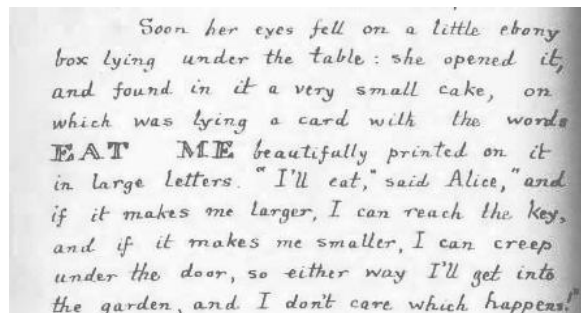 Soon her eyes fell on a little ebony
box lying under the table : she opened it,
and found in it a very small cake, on
which was lying a card with the words
EAT ME beautifully printed on it
in large letters. "I'll eat," said Alice, "and
if it makes me larger, I can reach the key,
and if it makes me smaller, I can creep
under the door, so either way I'll get into
the garden, and I don't care which happens!"